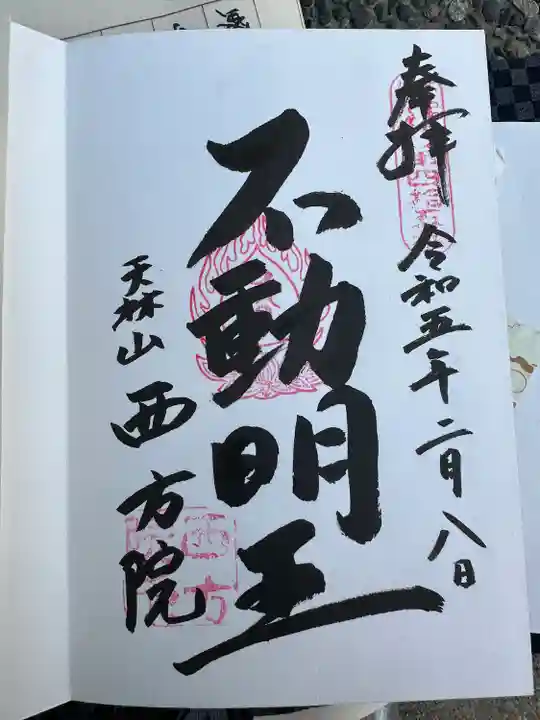 奉拝
令和五年二月八日
不動明王
天林山 西方院